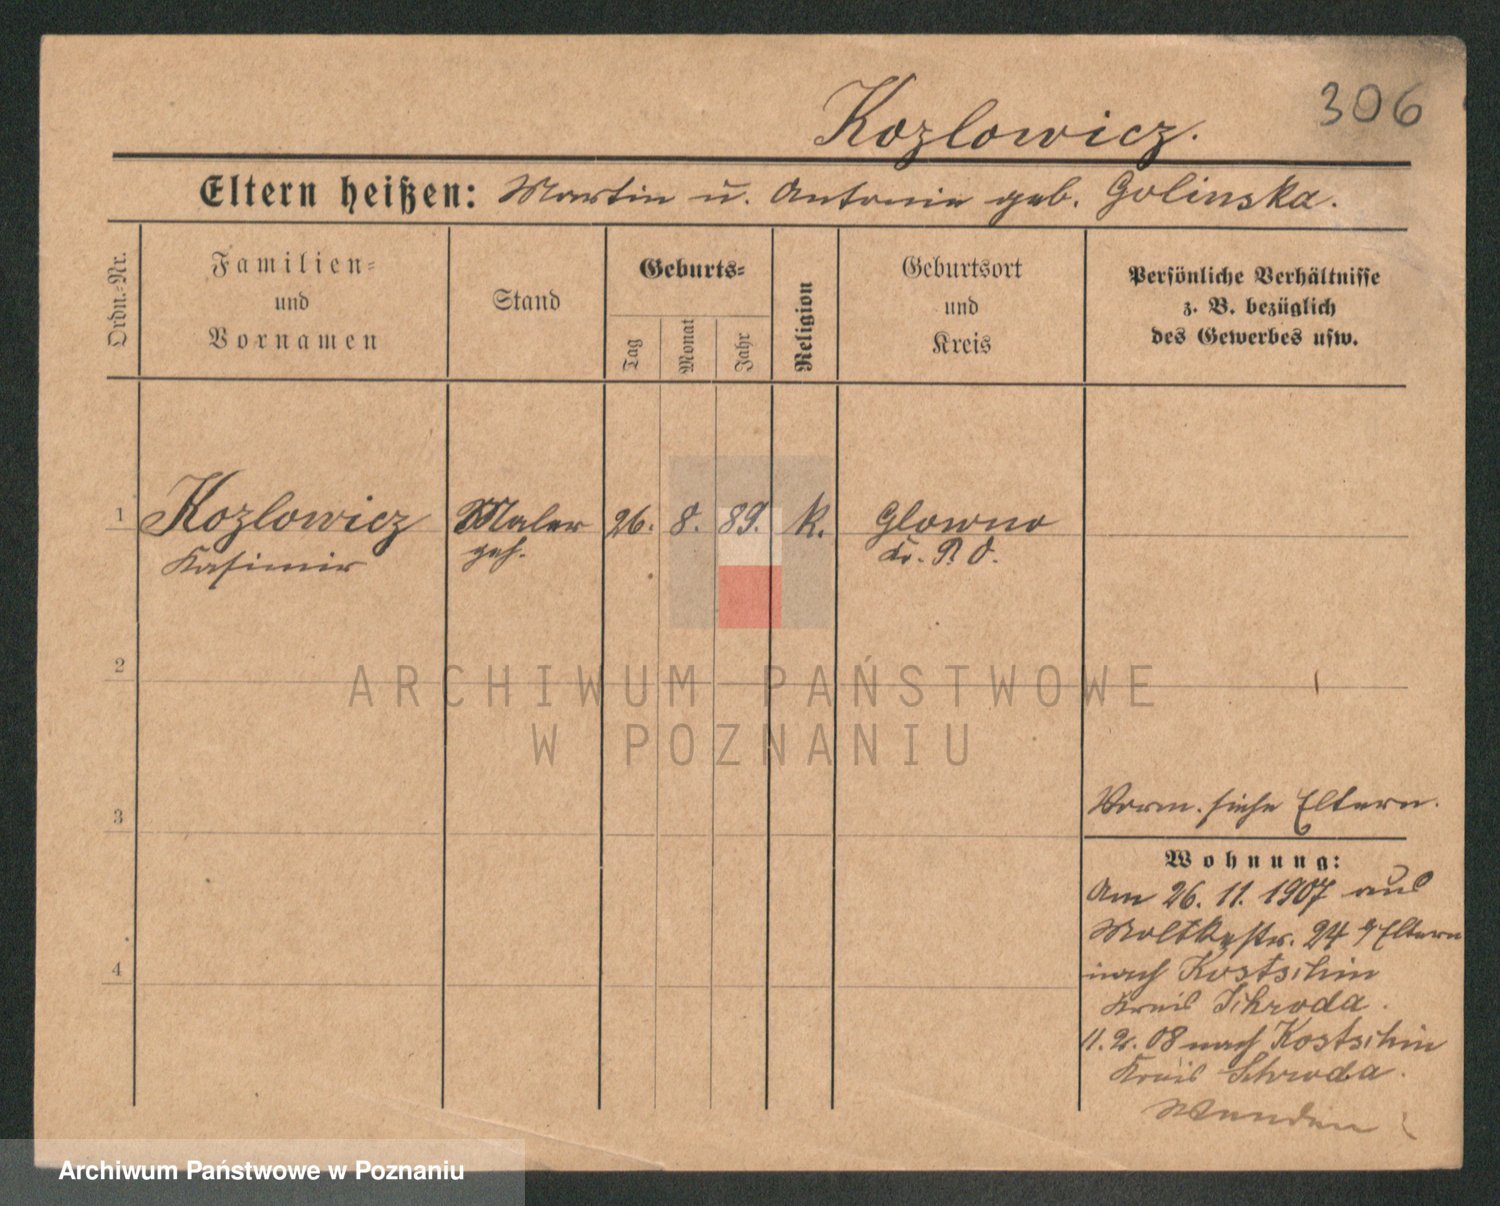 306
Kozlowicz.
Eltern heißen: Martin u. Antonie geb. Golinska.
Ordn.-Nr.
Familien-
und
Vornamen
Stand
Geburts-
Tag
Monat
Jahr
Religion
Geburtsort
und
Kreis
Persönliche Verhältnisse
z. B. bezüglich
des Gewerbes usw.
1 Kozlowicz Maler 26. 8. 89. k. Glowno
Kasimir geh. Kr. P. O.
2
3
4
Vorm. siehe Eltern.
Wohnung:
Am 26. 11. 1907 aus
Moltkestr. 24 Eltern
nach Kostschin
Kreis Schroda.
11. 2. 08 nach Kostschin
Kreis Schroda.
Wenden
ARCHIWUM PAŃSTWOWE
W POZNANIU
Archiwum Państwowe w Poznaniu